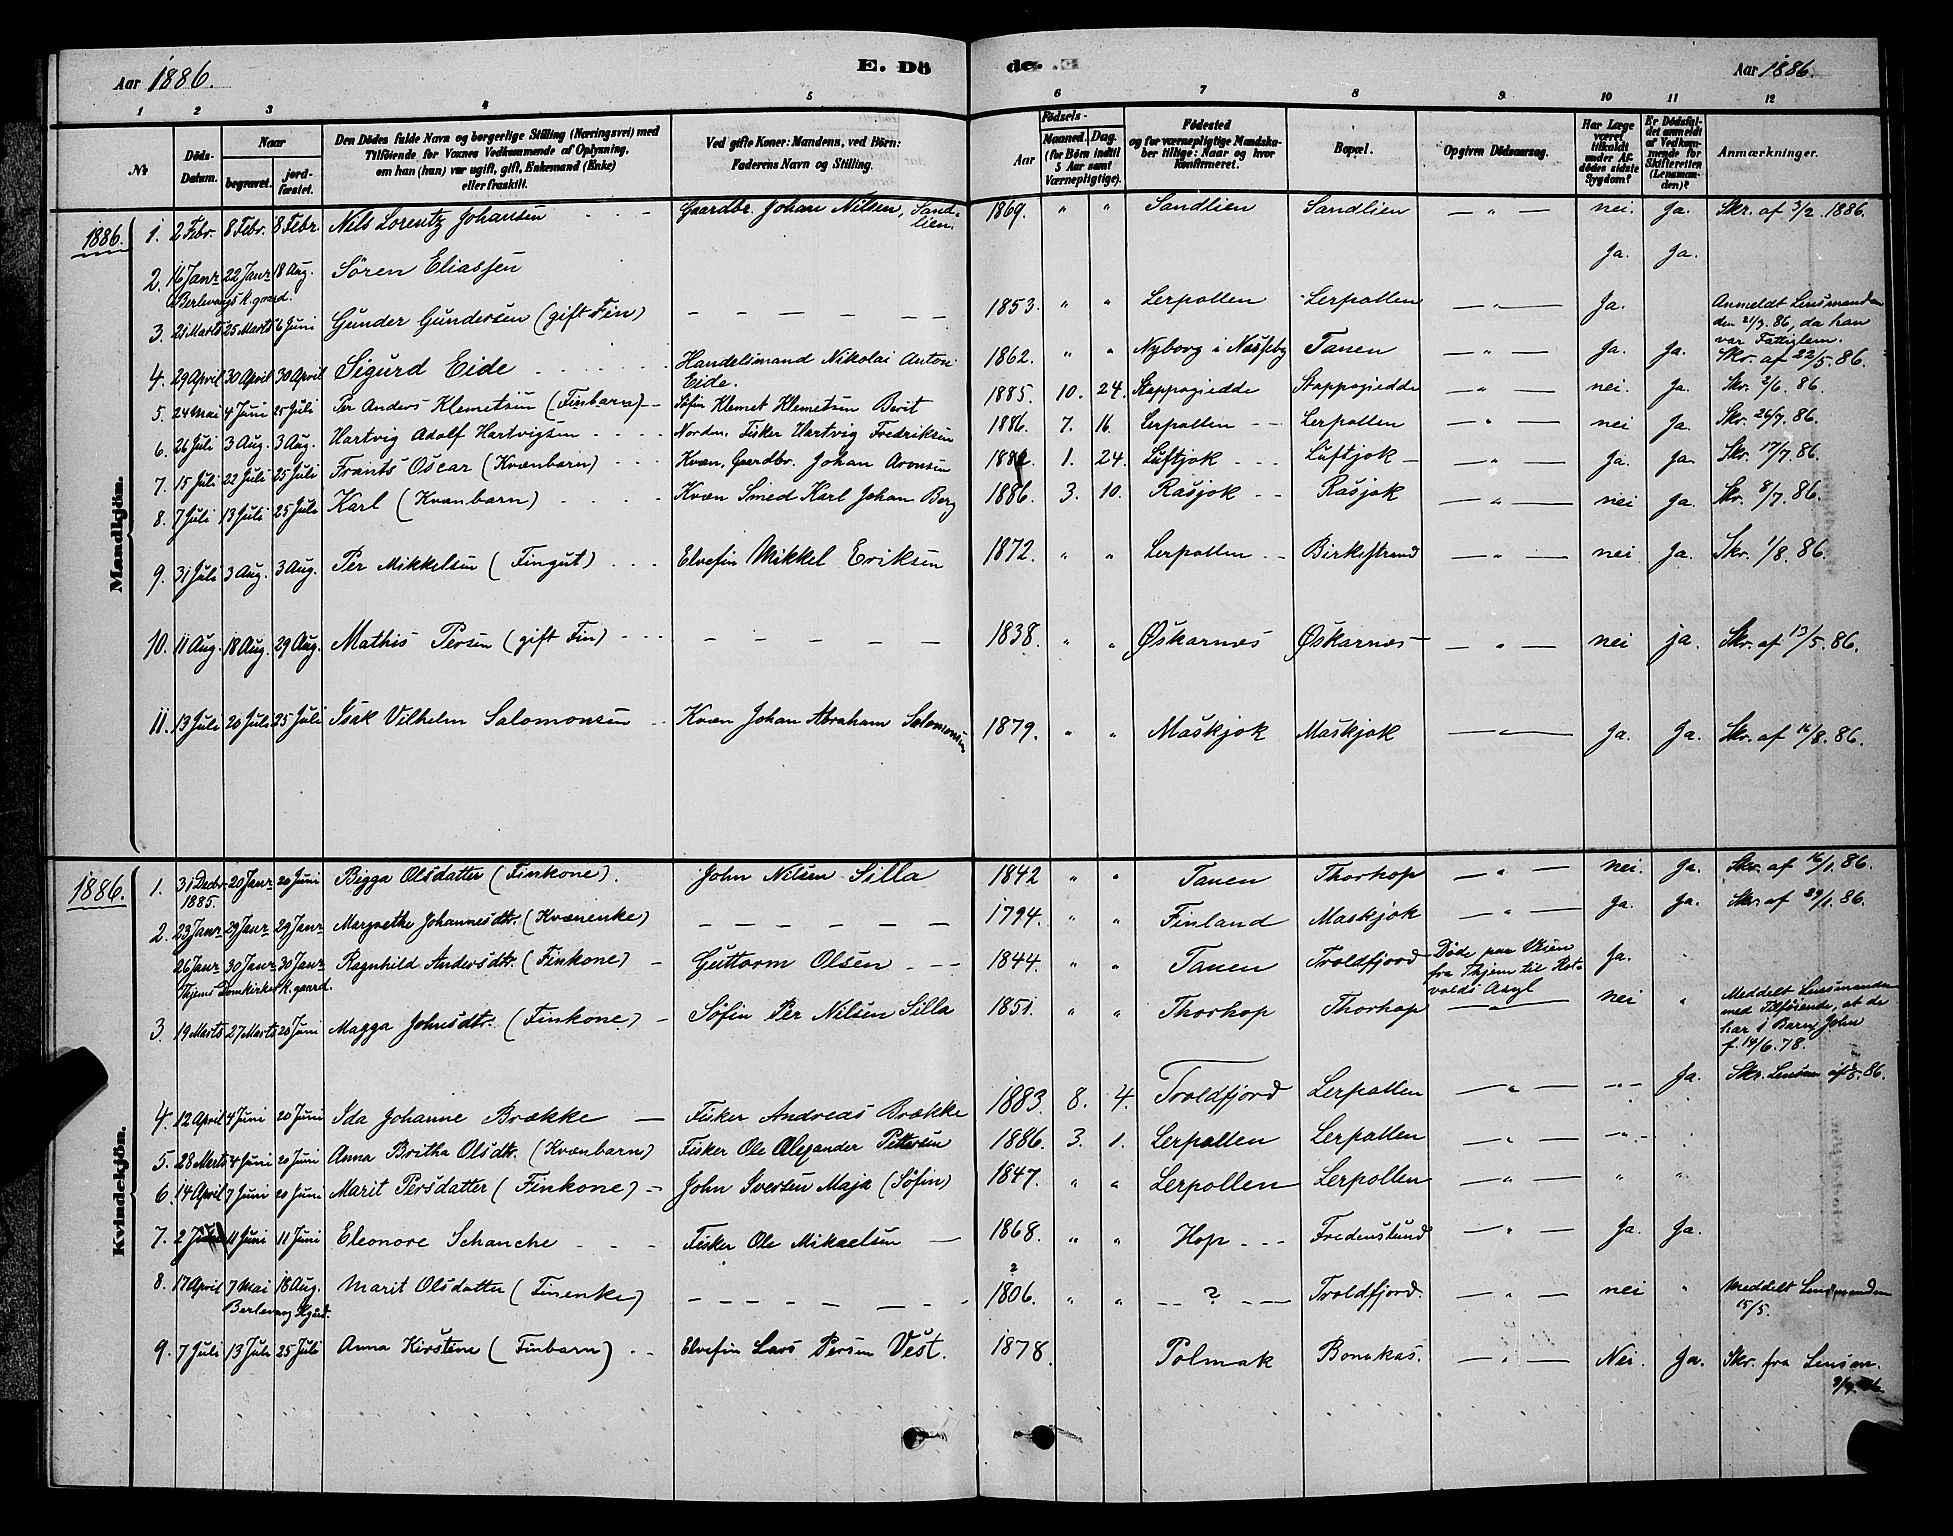 Aar 1886.
E. Dö
de.
Aar 1886.
1 2 3 4 5 6 7 8 9 10 11 12
No
Döds-Datum.
Naar
begravet.
jord-fæstet.
Den Dödes fulde Navn og borgerlige Stilling (Næringsvei) med
Tilföiende for Voxnes Vedkommende af Oplysning,
om han (hun) var ugift, gift, Enkemand (Enke)
eller fraskilt.
Ved gifte Koner: Mandens, ved Börn:
Faderens Navn og Stilling.
Födsels-
Aar
Maaned. Dag.
(for Börn indtil
5 Aar samt
Værnepligtige).
Födested
og for værnepligtige Mandska-
ber tillige: Naar og hvor
Konfirmeret.
Bopæl.
Opgiven Dödsaarsag.
Har Læge
været
tilkaldt
under Af-
dödes sidste
Sygdom?
Er Dödsfal-
det anmeldt
af Vedkom-
mende for
Skifteretten
(Lensman-
den)?
Anmærkninger.
Mandkjön.
1886. 1. 2 Febr. 8 Febr. 8 Febr. Nils Lorentz Johansen Gaardbr. Johan Nilsen, Sand-lien. 1869. " " Sandlien Sandlien — " — nei. Ja. Skr. af 3/2. 1886.
2. 16 Janr 22 Janr 18 Aug. Sören Eliassen Ja. Ja.
Berlevaags k.gaard.
3. 21 Marts 25 Marts 6 Juni Gunder Gundersen (gift Fin) — — — — — — 1853. " " Lerpollen Lerpollen — " — Ja. Anmeldt Lensmanden
den 21/3. 86, da han
var Fattiglem.
4. 29 April 30 April 30 April Sigurd Eide Handelsmand Nikolai Anton Eide. 1862. " " Nyborg i Næsseby Tanen — " — Ja. Ja. Skr. af 22/5. 86.
5. 24 Mai 4 Juni 25 Juli Per Anders Klemetsen (Finbarn) Söfin Klemet Klemetsen Berit 1885. 10. 24. Stappogiedde Stappogiedde — " — nei Ja. Skr. 2/6. 86.
6. 26 Juli 3 Aug. 3 Aug. Hartvig Adolf Hartvigsen Nordm. Fisker Hartvig Fredriksen 1886. 7. 16. Lerpollen Lerpollen — " — nei Ja. Skr. 26/7. 86.
7. 15 Juli 22 Juli 25 Juli Frants Oscar (Kvænbarn) Kvæn, Gaardbr. Johan Aronsen 1. 24. Luftjok Luftjok — " — Ja. Ja. Skr. 17/7. 86.
8. 7 Juli 13 Juli 25 Juli Karl (Kvænbarn) Kvæn Smed Karl Johan Berg 1886. 3. 10. Rasjok Rasjok — " — nei Ja. Skr. 8/7. 86.
9. 31 Juli 3 Aug. 3 Aug. Per Mikkelsen (Fingut) Elvefin Mikkel Eriksen 1872. " " Lerpollen Birkestrand — " — nei Ja. Skr. 1/8. 86.
10. 11 Aug. 18 Aug. 29 Aug. Mathis Persen (gift Fin) — — — — 1838. " " Øskarnæs Øskarnæs — " — nei ja. Skr. af 13/5. 86.
11. 13 Juli 20 Juli 25 Juli Isak Vilhelm Salomonsen Kvæn Johan Abraham Salomonsen 1879. " " Maskjok Maskjok — " — Ja. Ja. Skr. af 16/8. 86.
Kvindekjön.
1886. 1. 31 Decbr 1885. 20 Janr 20 Juni Bigga Olsdatter (Finkone). John Nilsen Silla 1842 " " Tanen Thorhop — " — nei. Ja. Skr. af 16/1. 86.
2. 23 Janr 29 Janr 29 Janr Margrethe Johannesdtr. (Kvænenke) — — — — — — 1794. " " Finland Maskjok — " — Ja. Ja. Skr af 29/1. 86.
26 Janr 30 Janr 30 Janr Ragnhild Andersdtr. (Finkone) Guttorm Olsen 1844. " " Tanen Troldfjord Döde paa Veien
fra Thjem til Rot-
volds Asyl Ja.
Thjems Domkirkes k.gaard.
3. 19 Marts 27 Marts 20 Juni Magga Johnsdtr. (Finkone) Söfin Per Nilsen Silla 1851. " " Thorhop Thorhop — " — nei " Meddelt Lensmanden
med Tilföiende, at de
har 1 Barn, John
f. 14/6. 78.
4. 12 April 4 Juni 20 Juni Ida Johanne Brække Fisker Andreas Brække 1883. 8. 4. Troldfjord Lerpollen — " — " Ja. Skr. Lensm. af 86.
5. 28 Marts 4 Juni 20 Juni Anna Britha Olsdtr. (Kvænbarn) Fisker Ole Alexander Pettersen 1886. 3. 1. Lerpollen Lerpollen — " — "
6. 14 April 7 Juni 20 Juni Marit Persdatter (Finkone) John Iversen Maja (Söfin) 1847. " " Lerpollen Lerpollen — " — " "
7. 2 11 Juni 11 Juni Eleonore Schanche Fisker Ole Mikaelsen 1868. " " Hop Fredenslund — " — Ja. Ja.
8. 17 April 7 Mai 18 Aug. Marit Olsdatter (Finenke) — — — — — — ? 1806. " " — ? — Troldfjord. — " — nei " Meddelt Lensmanden
15/5.
Berlevaag Kgaard.
9. 7 Juli 13 Juli 25 Juli Anna Kirstene (Finbarn) Elvefin Lars Persen Vest. 1878. Polmak Bonakas. — " — Nei Ja. Skr. fra Lensm.